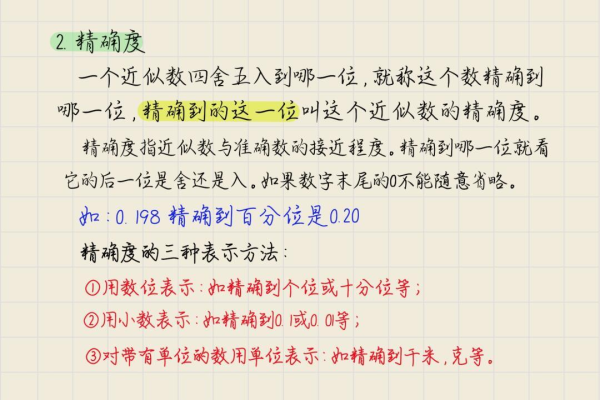 2. 精确度
一个近似数四舍五入到哪一位,就称这个数精确到
哪一位,精确到的这一位叫这个近似数的精确度。
精确度指近似数与准确数的接近程度。精确到哪一位就看
它的后一位是舍还是入。如果数字末尾的0不能随意省略。
如:0.198 精确到百分位是0.20
精确度的三种表示方法:
①用数位表示:如精确到个位或十分位等;
②用小数表示:如精确到0.1或0.01等;
③对带有单位的数用单位表示:如精确到千米,克等。